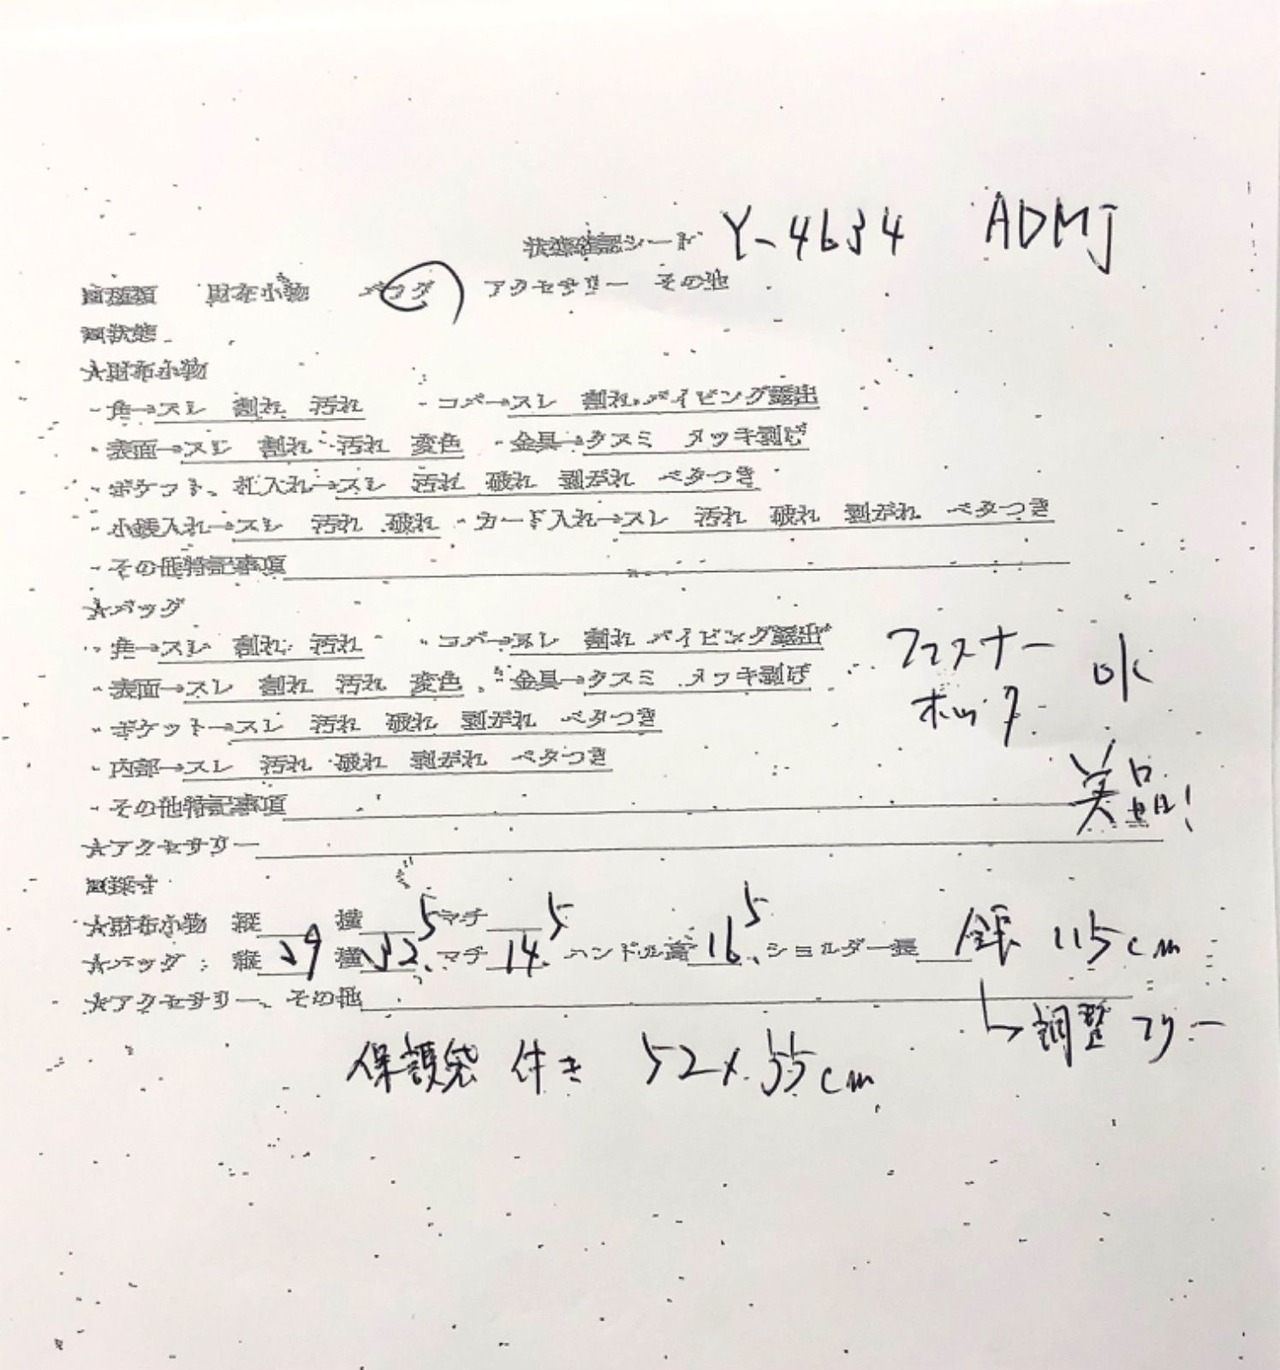 状態確認シート Y-4634 ADMJ
■種類 財布小物 バッグ アクセサリー その他
■状態
★財布小物
・角→スレ 割れ 汚れ ・コバ→スレ 割れ パイピング露出
・表面→スレ 割れ 汚れ 変色 ・金具→クスミ メッキ剥げ
・ポケット、札入れ→スレ 汚れ 破れ 剥がれ ベタつき
・小銭入れ→スレ 汚れ 破れ ・カード入れ→スレ 汚れ 破れ 剥がれ ベタつき
・その他特記事項
★バッグ
・角→スレ 割れ 汚れ ・コバ→スレ 割れ パイピング露出
・表面→スレ 割れ 汚れ 変色 ・金具→クスミ メッキ剥げ
ファスナー
ホック
ok
・ポケット→スレ 汚れ 破れ 剥がれ ベタつき
・内部→スレ 汚れ 破れ 剥がれ ベタつき
・その他特記事項
美品!
★アクセサリー
■採寸
★財布小物 縦 横 マチ
★バッグ:縦 29 横 32.5 マチ 14.5 ハンドル高 16.5 ショルダー長 全長 115cm
★アクセサリー、その他
↳調整フリー
保護袋 付き 52×55cm